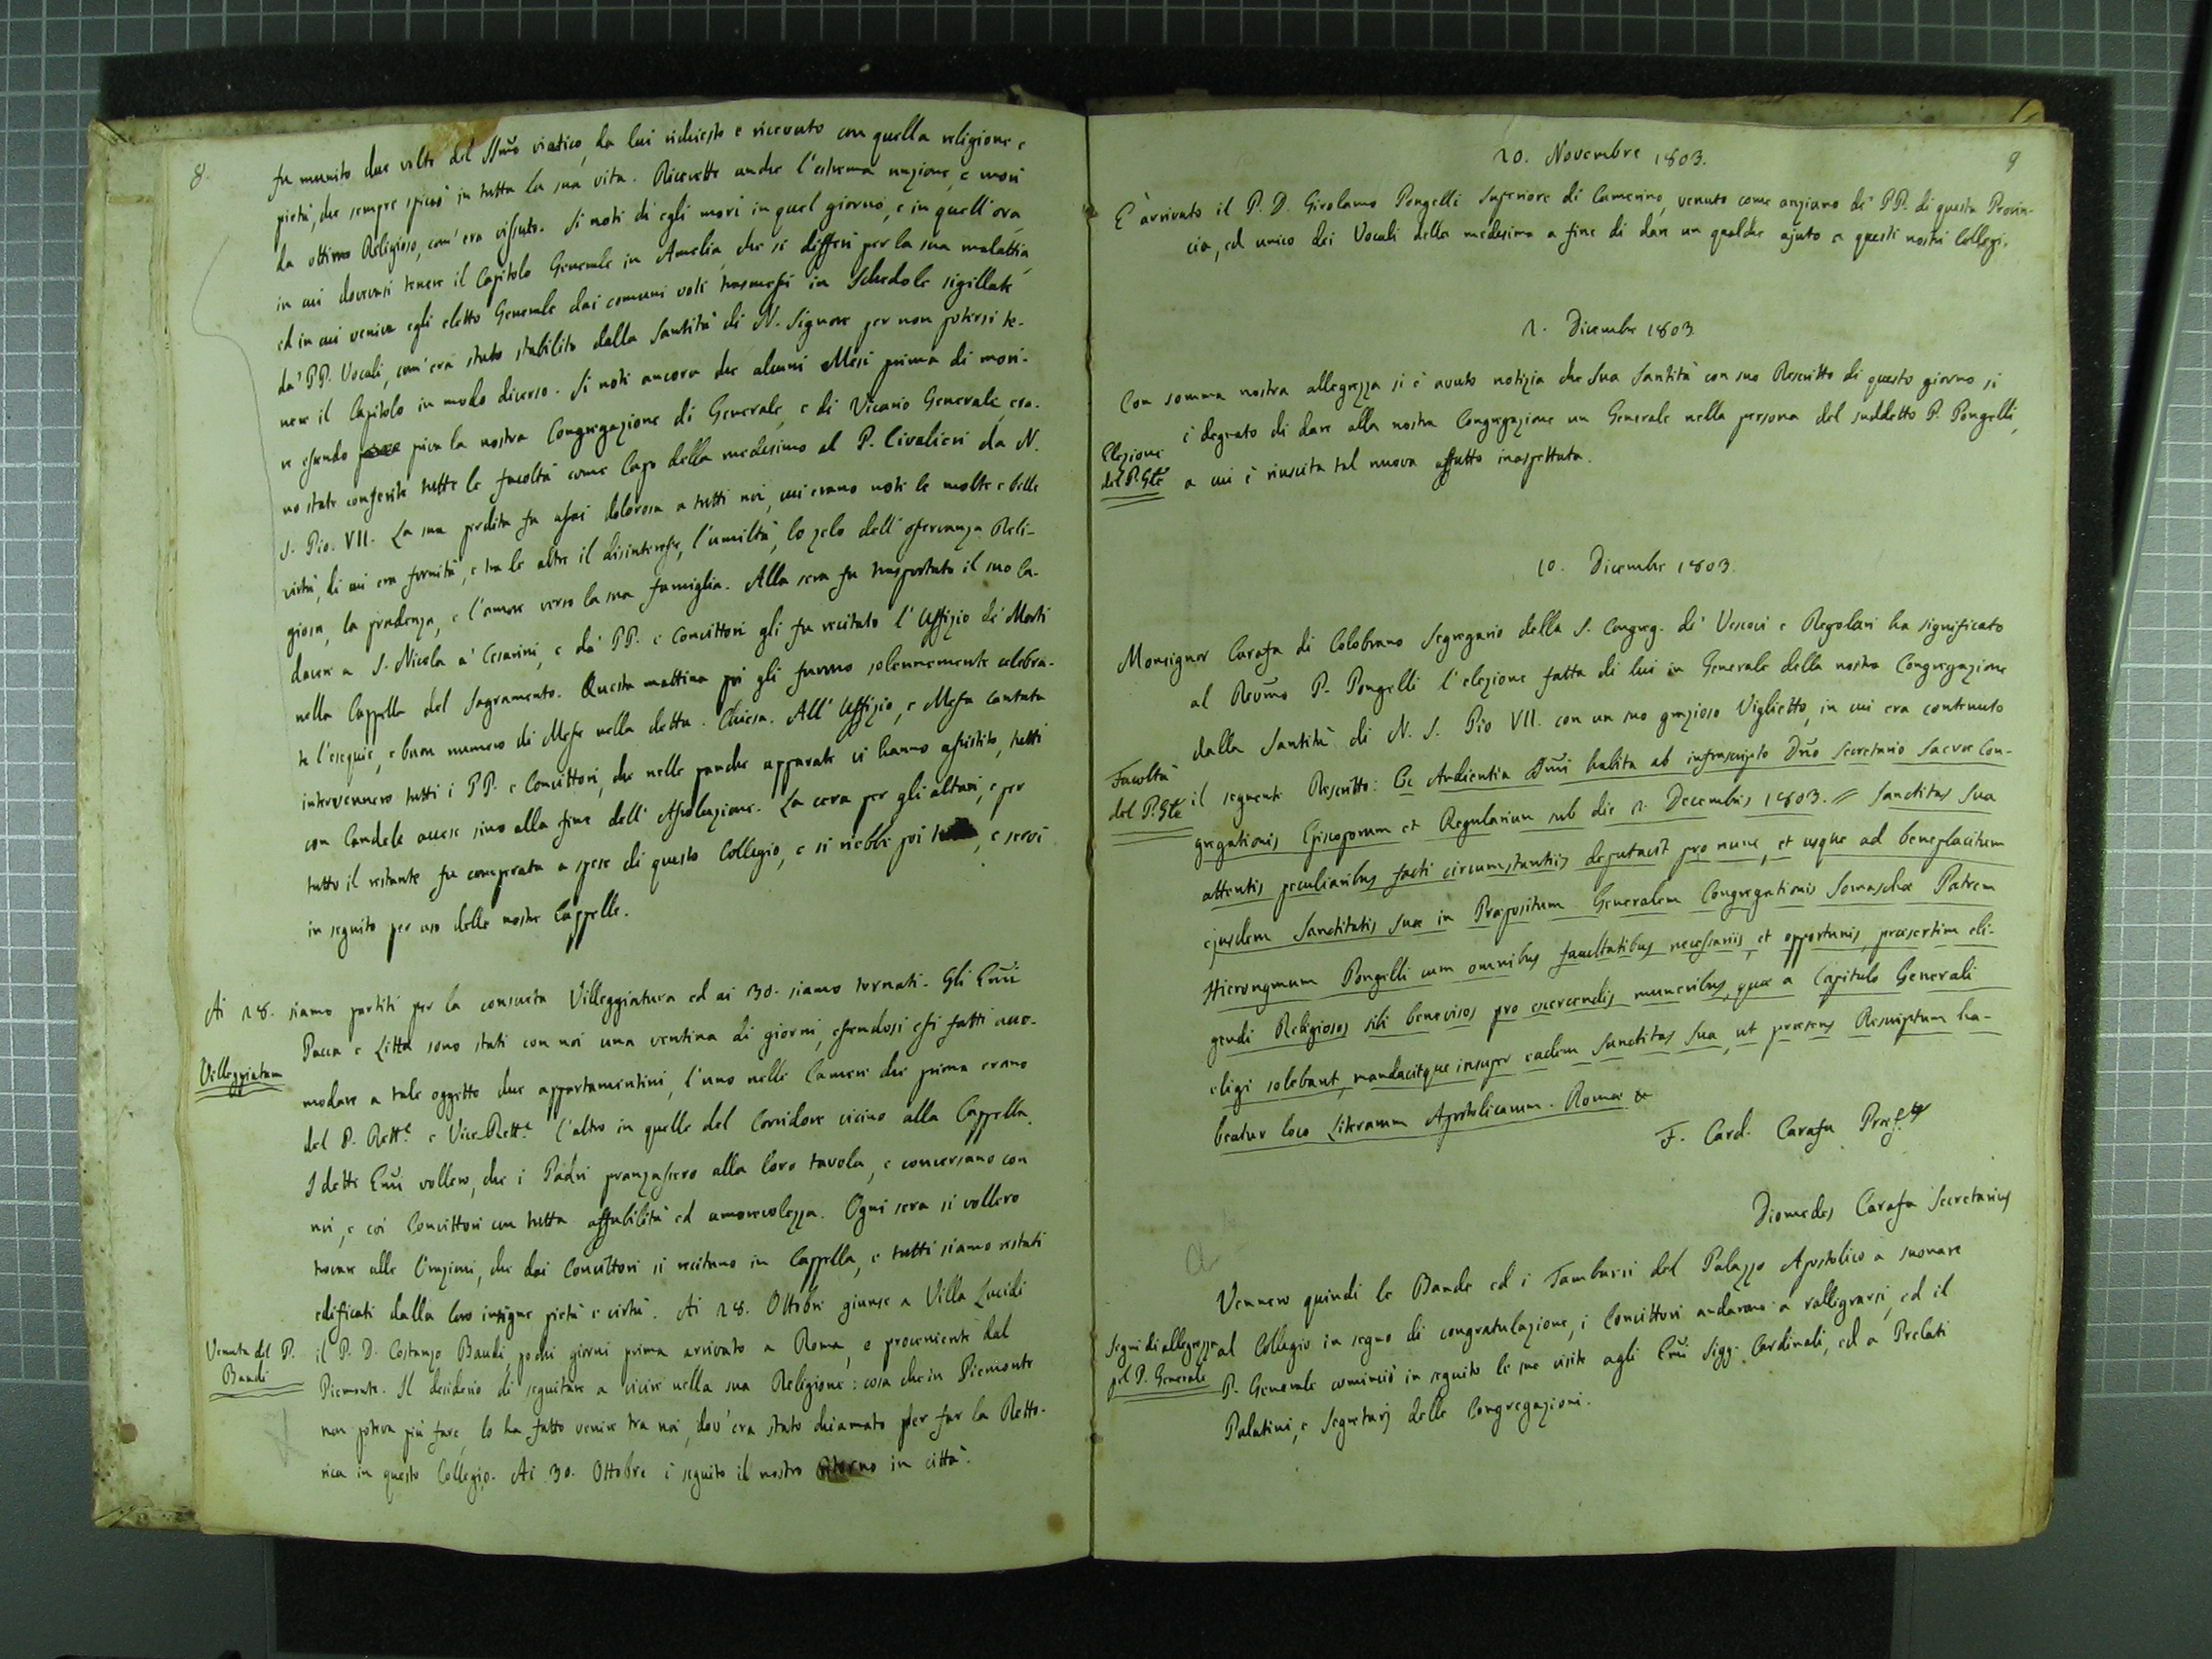 8.
fu munito due volte del SSm̃o viatico, da lui richiesto e ricevuto con quella religione e
pietà, che sempre spiccò in tutta la sua vita. Ricevette anche l'estrema unzione, e morì
da ottimo Religioso, com'era vissuto. Si noti ch'egli morì in quel giorno, e in quell'ora
in cui dovevasi tenere il Capitolo Generale in Amelia, che si differì per la sua malattia,
ed in cui veniva egli eletto Generale dai comuni voti trasmessi in Schedole sigillate
da' PP. Vocali, com'era stato stabilito dalla Santità di N. Signore per non potersi te-
nere il Capitolo in modo diverso. Si noti ancora che alcuni Mesi prima di mori-
re essendo priva la nostra Congregazione di Generale, e di Vicario Generale, era-
no state conferite tutte le facoltà come Capo della medesima al P. Civalieri da N.
S. Pio VII. La sua perdita fu assai dolorosa a tutti noi, cui erano noti le molte e belle
virtù, di cui era fornito, e tra le altre il disinteresse, l'umiltà, lo zelo dell'osservanza Reli-
giosa, la prudenza, e l'amore verso la sua famiglia. Alla sera fu trasportato il suo Ca-
davere a S. Nicola a' Cesarini, e da' PP. e Convittori gli fu recitato l'Uffizio de' Morti
nella Cappella del Sagramento. Questa mattina poi gli furono solennemente celebra-
te l'esequie, e buon numero di Messe nella detta Chiesa. All'Uffizio, e Messa cantata
intervennero tutti i PP. e Convittori, che nelle panche apparate vi hanno assistito, tutti
con Candele accese sino alla fine dell'Assoluzione. La cera per gli altari, e per
tutto il restante fu comperata a spese di questo Collegio, e si riebbe poi tutta, e servì
in seguito per uso delle nostre Cappelle.
Ai 18. siamo partiti per la consueta Villeggiatura ed ai 30. siamo tornati. Gli Em̃i
Villeggiatura
Pacca e Litta sono stati con noi una ventina di giorni, essendosi essi fatti acco-
modare a tale oggetto due appartamentini, l'uno nelle Camere che prima erano
del P. Rett.e e Vice-Rett.e l'altro in quelle del Corridore vicino alla Cappella.
I detti Em̃i vollero, che i Padri pranzassero alla loro tavola, e conversano con
noi, e coi Convittori con tutta affabilità ed amorevolezza. Ogni sera si vollero
trovare alle Orazioni, che dai Convittori si recitano in Cappella, e tutti siamo restati
edificati dalla loro insigne pietà e virtù. Ai 18. Ottobre giunse a Villa Lucidi
Venuta del P.
Bandi
il P. D. Costanzo Bandi, pochi giorni prima arrivato a Roma, e proveniente dal
Piemonte. Il desiderio di seguitare a vivere nella sua Religione: cosa che in Piemonte
non poteva più fare, lo ha fatto venire tra noi, dov'era stato chiamato per far la Retto-
rica in questo Collegio. Ai 30. Ottobre è seguito il nostro ritorno in città.
9
20. Novembre 1803.
È arrivato il P. D. Girolamo Pongelli Superiore di Camerino, venuto come anziano de' PP. di questa Provin-
cia, ed unico dei Vocali della medesima a fine di dare un qualche ajuto a questi nostri Collegi.
2. Dicembre 1803
Con somma nostra allegrezza si è avuto notizia che Sua Santità con suo Rescritto di questo giorno si
è degnato di dare alla nostra Congregazione un Generale nella persona del suddetto P. Pongelli,
Elezione
del P. Gle
a cui è riuscita tal nuova affatto inaspettata.
10. Dicembre 1803.
Monsignor Carafa di Colobrano Segregario della S. Congreg. de' Vescovi e Regolari ha significato
al Revm̃o P. Pongelli l'elezione fatta di lui in Generale della nostra Congregazione
dalla Santità di N. S. Pio VII. con un suo grazioso Viglietto, in cui era contenuto
Facoltà
del P. Gle
il seguente Rescritto: Ex Audientia SSm̃i habita ab infrascripto Dn̄o Secretario Sacræ Con-
gregationis Episcoporum et Regularium sub die 2. Decembris 1803. // Sanctitas Sua
attentis peculiaribus facti circumstantiis deputavit pro nunc, et usque ad beneplacitum
ejusdem Sanctitatis Suæ in Præpositum Generalem Congregationis Somaschæ Patrem
Hieronymum Pongelli cum omnibus facultatibus necessariis, et opportunis, præsertim eli-
gendi Religiosos sibi benevisos pro exercendis muneribus, quæ a Capitulo Generali
eligi solebant, mandavitque insuper eadem Sanctitas Sua, ut præsens Rescriptum ha-
beatur loco Literarum Apostolicarum. Romæ &
F. Card. Carafa Præf.s
Diomedes Carafa Secretarius
Vennero quindi le Bande ed i Tamburri del Palazzo Apostolico a suonare
Segni di allegrezza
pel P. Generale
al Collegio in segno di congratulazione, i Convittori andarono a rallegrarsi, ed il
P. Generale cominciò in seguito le sue visite agli Em̃i Sigg. Cardinali, ed a Prelati
Palatini, e Segretarj delle Congregazioni.